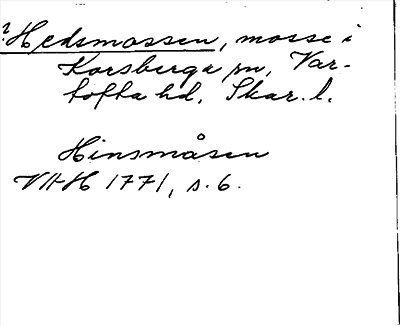 ?Hedsmossen, mosse i
Korsberga sn, Var-
tofta hd, Skar. l.
Hinsmåsen
VAH 1771, s. 6.